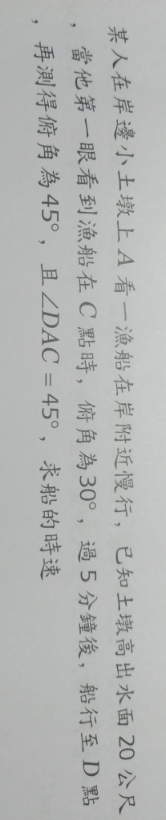 某人在岸邊小土墩上 A 看一漁船在岸附近慢行，已知土墩高出水面 20 公尺
，當他第一眼看到漁船在 C 點時，俯角為30°，過 5 分鐘後，船行至 D 點
，再測得俯角為45°，且∠DAC = 45°，求船的時速